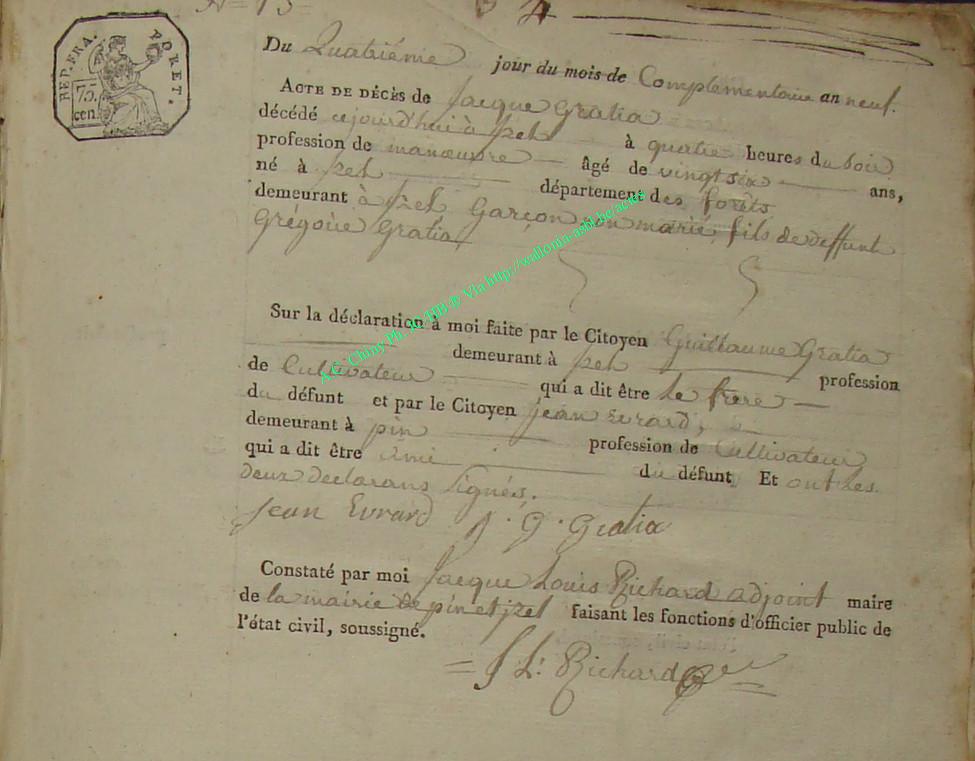 REP. FRA. TPORET.
75.
cen
Du Quatriéme jour du mois de Complementaire an neuf.
ACTE DE DÉCÈS de Jacque Gratia
décédé cejourd'hui à jzel à quatre heures du soir
profession de manœuvre âgé de vingt six ans,
né à jzel département des forêts
demeurant à jzel Garçon non marié, fils de deffunt
Grégoire Gratia
Sur la déclaration à moi faite par le Citoyen Guillaume Gratia
demeurant à jzel profession
de Cultivateur qui a dit être Le frere
du défunt et par le Citoyen jean Evrard,
demeurant à pin profession de Cultivateur
qui a dit être Ami du défunt Et ont les
deux declarans Signés.
Jean Evrard J. G. Gratia
Constaté par moi Jacque Louis Richard adjoint maire
de la mairie de pin et jzel faisant les fonctions d'officier public de
l'état civil, soussigné.
J L: Richard
A.G. Chiny Ph. Via http://wallonia-asbl.be/actes